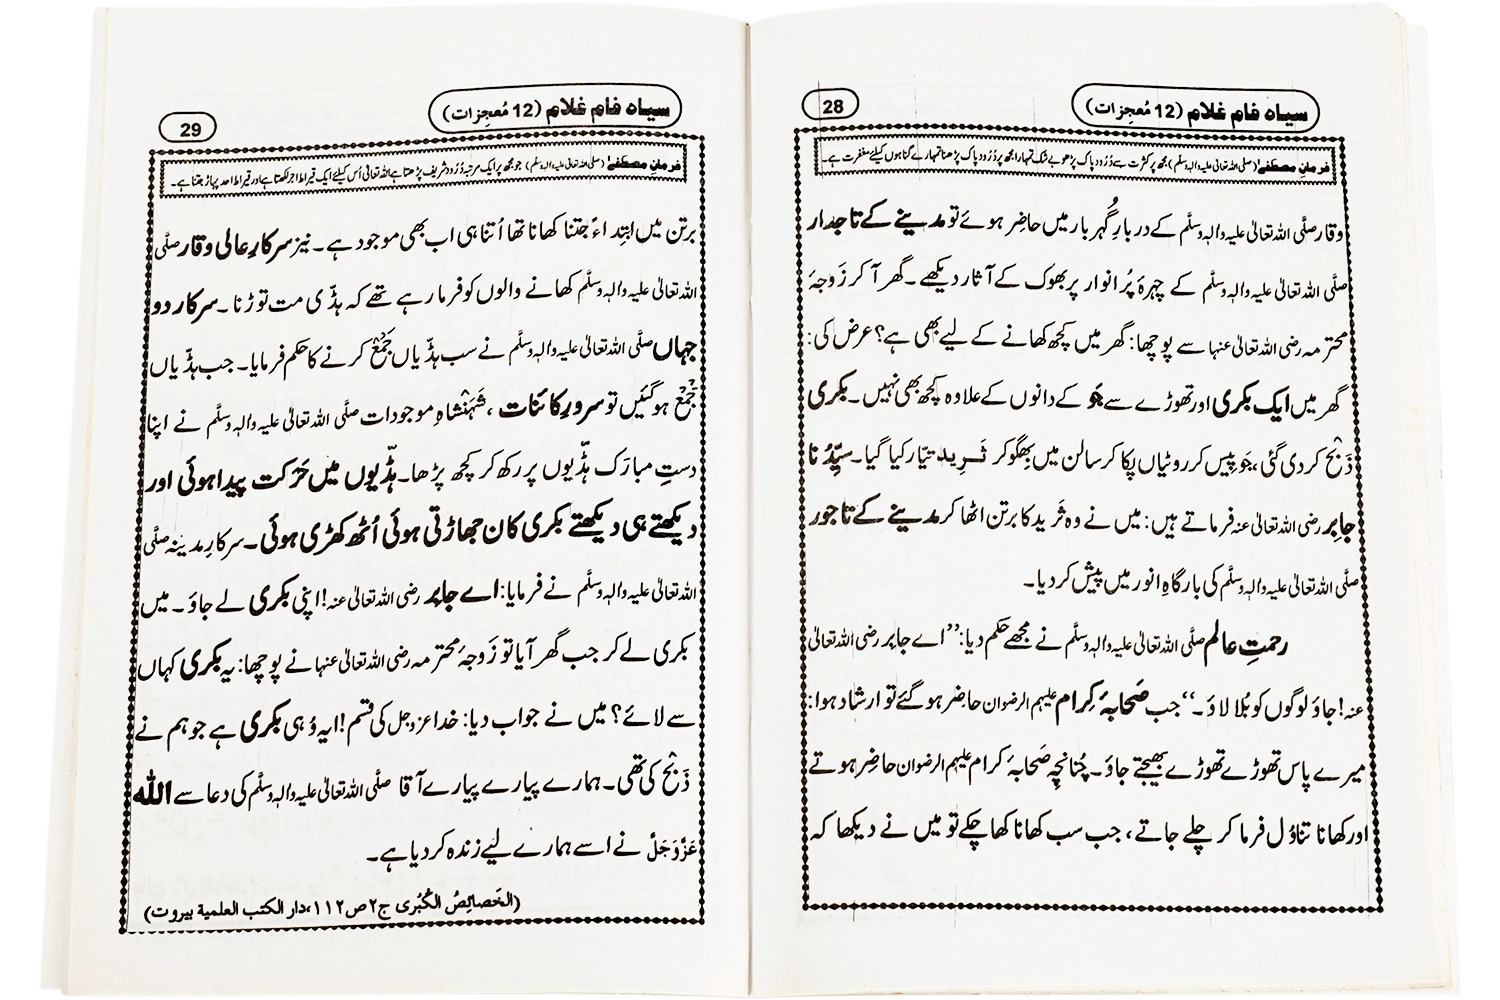 28
سیاہ فام غلام (12 مُعجِزات)
فرمانِ مصطفےٰ (صلی اللہ تعالیٰ علیہ والہٖ وسلم) مجھ پر کثرت سے دُرُود پاک پڑھو بے شک تمہارا مجھ پر دُرُود پاک پڑھنا تمہارے گناہوں کیلئے مغفرت ہے۔
وقار صلَّی اللہ تعالیٰ علیہ والہٖ وسلَّم کے دربارِ گُہر بار میں حاضِر ہوئے تو مدینے کے تاجدار
صلَّی اللہ تعالیٰ علیہ والہٖ وسلَّم کے چہرۂ پُر انوار پر بھوک کے آثار دیکھے۔ گھر آ کر زَوجۂ
محترمہ رضی اللہ تعالیٰ عنہا سے پوچھا: گھر میں کچھ کھانے کے لیے بھی ہے؟ عرض کی:
گھر میں ایک بکری اور تھوڑے سے جَو کے دانوں کے علاوہ کچھ بھی نہیں۔ بکری
ذَبْح کر دی گئی، جَو پیس کر روٹیاں پکا کر سالن میں بِھگو کر ثَرِید تیّار کیا گیا۔ سیِّدُنا
جابِر رضی اللہ تعالیٰ عنہ فرماتے ہیں: میں نے وہ ثَرید کا برتن اٹھا کر مدینے کے تاجور
صلَّی اللہ تعالیٰ علیہ والہٖ وسلَّم کی بارگاہِ انور میں پیش کر دیا۔
رحمتِ عالم صلَّی اللہ تعالیٰ علیہ والہٖ وسلَّم نے مجھے حکم دیا: ’’اے جابر رضی اللہ تعالیٰ
عنہ! جاؤ لوگوں کو بُلا لاؤ۔‘‘ جب صَحابۂ کِرام علیہم الرضوان حاضِر ہو گئے تو ارشاد ہوا:
میرے پاس تھوڑے تھوڑے بھیجتے جاؤ۔ چُنانچِہ صَحابۂ کرام علیہم الرضوان حاضِر ہوتے
اور کھانا تناوُل فرما کر چلے جاتے، جب سب کھانا کھا چکے تو میں نے دیکھا کہ
29
سیاہ فام غلام (12 مُعجِزات)
فرمانِ مصطفےٰ (صلی اللہ تعالیٰ علیہ والہٖ وسلم) جو مجھ پر ایک مرتبہ دُرُود شریف پڑھتا ہے اللہ تعالیٰ اُس کیلئے ایک قیراط اجر لکھتا ہے اور قیراط احد پہاڑ جتنا ہے۔
برتن میں ابتِداءً جتنا کھانا تھا اُتنا ہی اب بھی موجود ہے۔ نیز سرکارِ عالی وقار صلَّی
اللہ تعالیٰ علیہ والہٖ وسلَّم کھانے والوں کو فرما رہے تھے کہ ہڈّی مت توڑنا۔ سرکارِ دو
جہاں صلَّی اللہ تعالیٰ علیہ والہٖ وسلَّم نے سب ہڈّیاں جَمْع کرنے کا حکم فرمایا۔ جب ہڈّیاں
جَمْع ہو گئیں تو سرورِ کائنات، شَہَنشاہِ موجودات صلَّی اللہ تعالیٰ علیہ والہٖ وسلَّم نے اپنا
دستِ مبارَک ہڈّیوں پر رکھ کر کچھ پڑھا۔ ہڈّیوں میں حَرَکت پیدا ہوئی اور
دیکھتے ہی دیکھتے بکری کان جھاڑتی ہوئی اُٹھ کھڑی ہوئی۔ سرکارِ مدینہ صلَّی
اللہ تعالیٰ علیہ والہٖ وسلَّم نے فرمایا: اے جابِر رضی اللہ تعالیٰ عنہ! اپنی بکری لے جاؤ۔ میں
بکری لے کر جب گھر آیا تو زَوجۂ محترمہ رضی اللہ تعالیٰ عنہا نے پوچھا: یہ بکری کہاں
سے لائے؟ میں نے جواب دیا: خدا عزوجل کی قسم! یہ وُہی بکری ہے جو ہم نے
ذَبْح کی تھی۔ ہمارے پیارے پیارے آقا صلَّی اللہ تعالیٰ علیہ والہٖ وسلَّم کی دعا سے اللہ
عَزَّوَجَلَّ نے اسے ہمارے لیے زندہ کر دیا ہے۔
(الخَصائِصُ الکُبریٰ ج۲ ص۱۱۲، دار الکتب العلمیة بیروت)